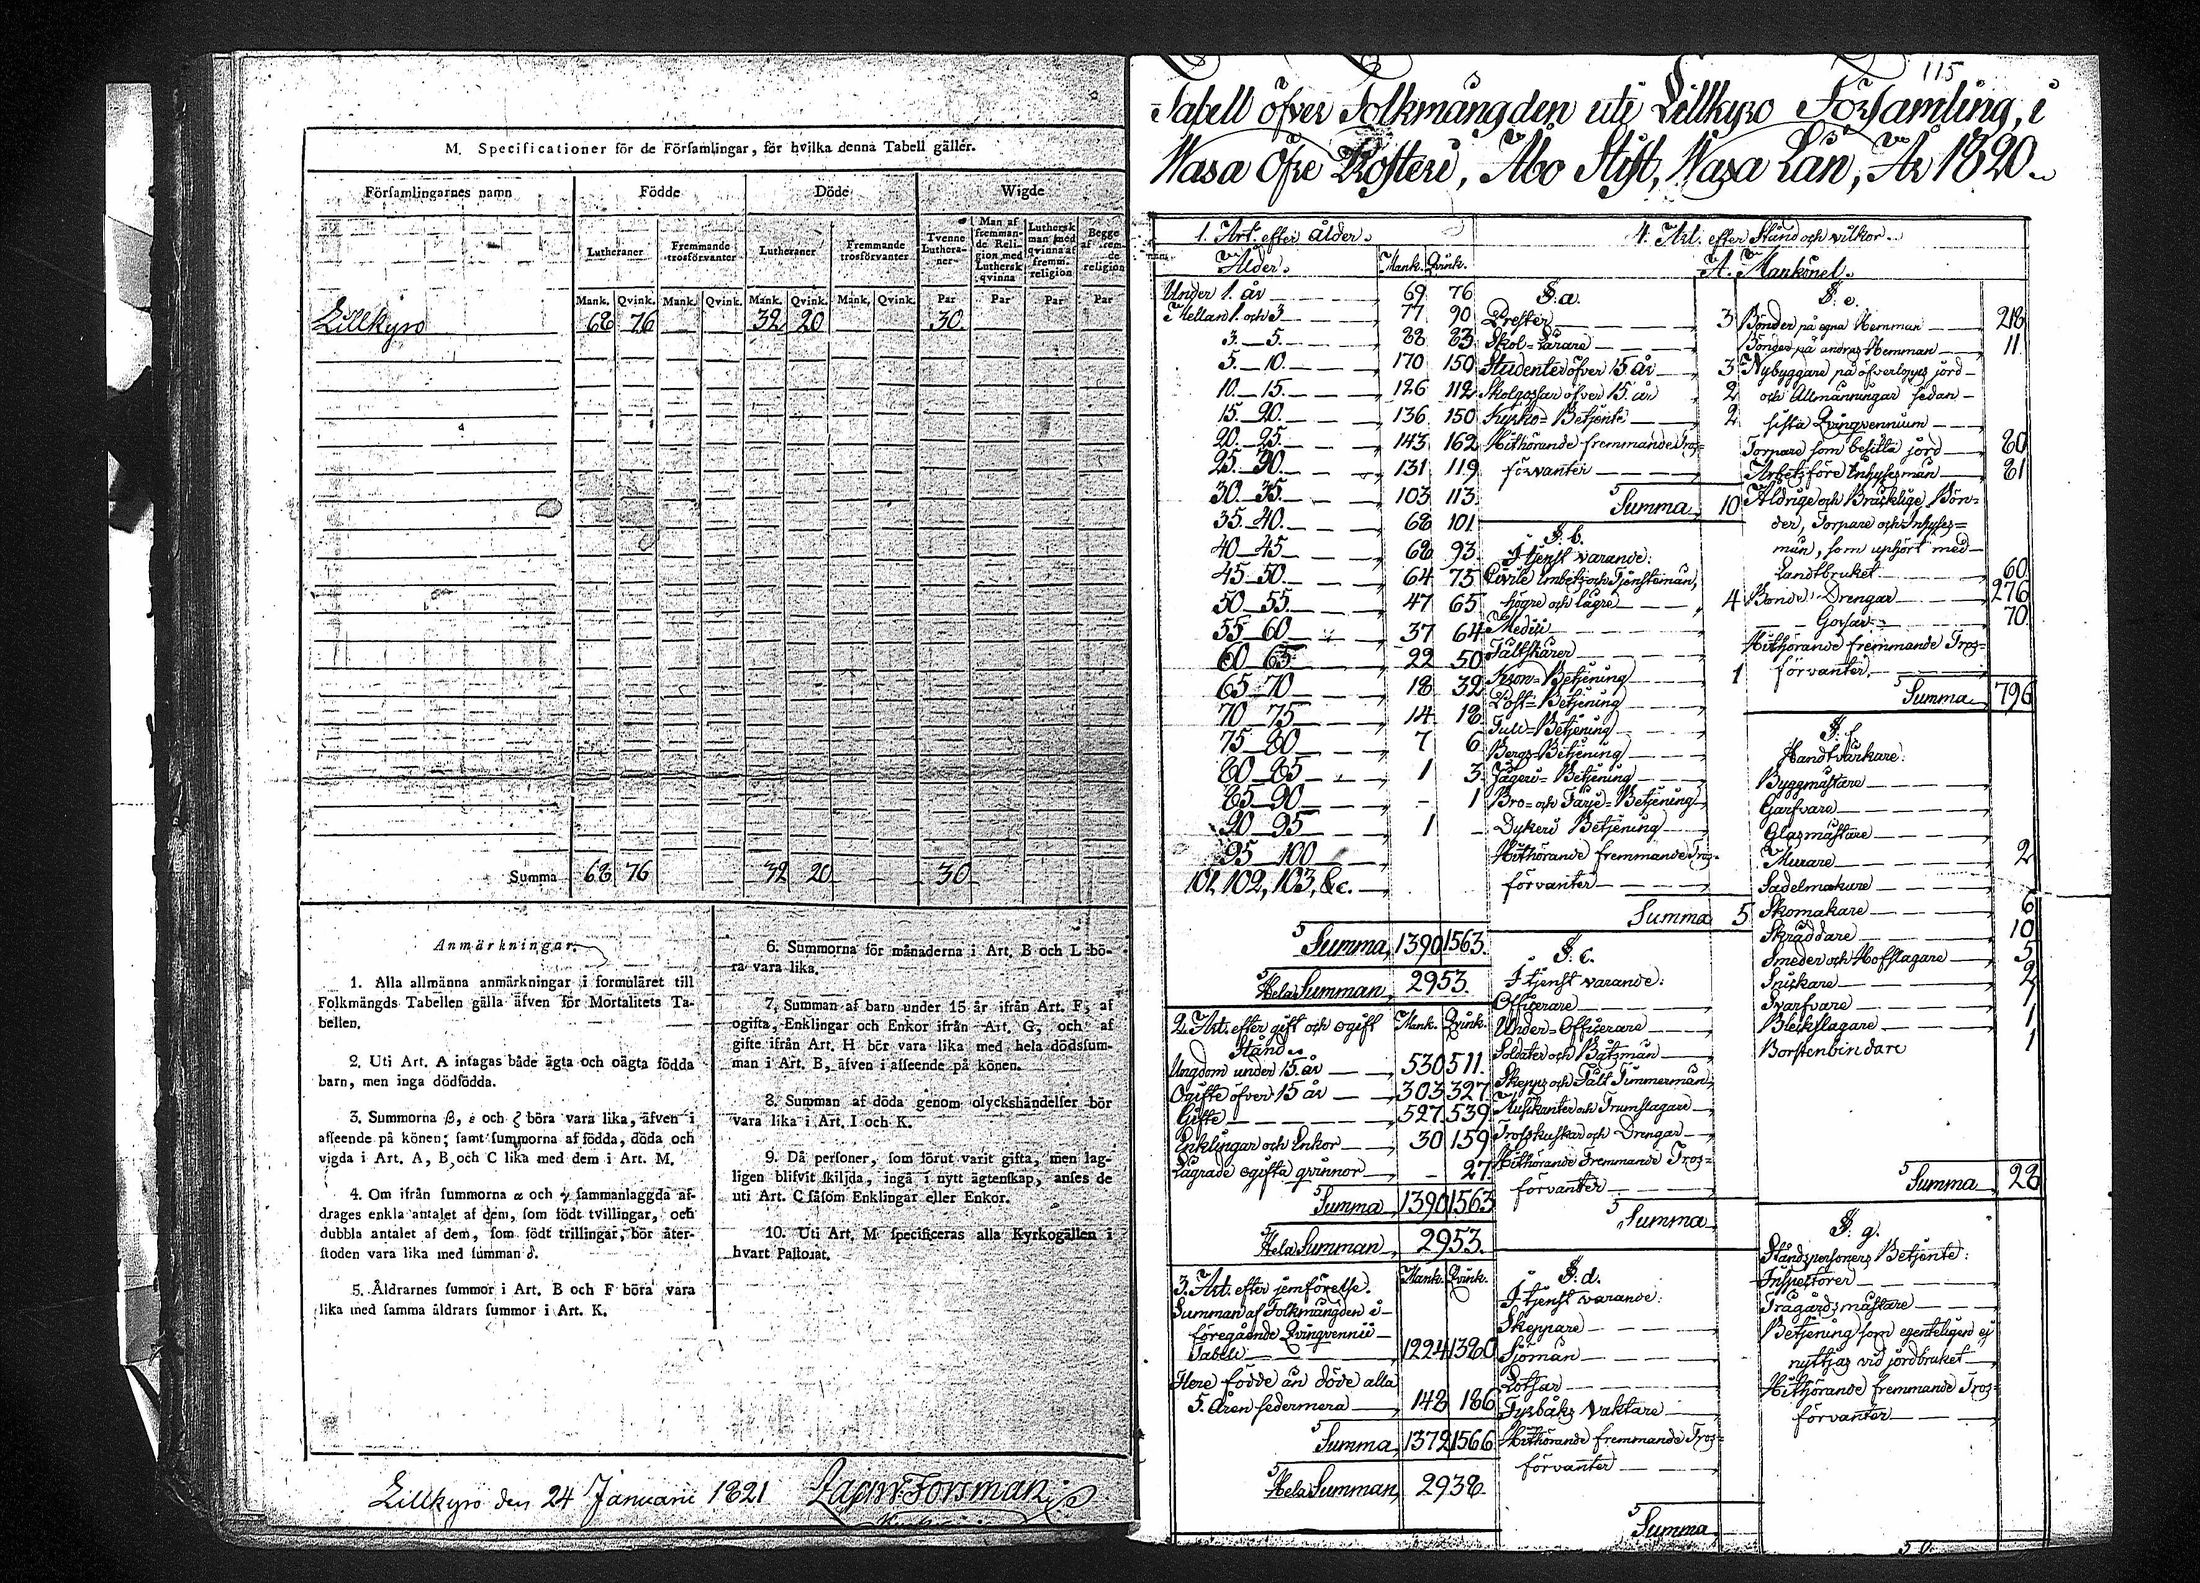 M. Specificationer för de Församlingar, för hvilka denna Tabell gäller.
Församlingarnes namn Födde Döde Wigde
Lutheraner Fremmande trosförvanter Lutheraner Fremmande trosförvanter Tvenne Lutheraner Man af fremmande Religion med Luthersk qvinna Luthersk man med qvinna af fremm. religion Begge af fremde religion
Mank. Qvink. Mank. Qvink. Mank. Qvink. Mank. Qvink. Par Par Par Par
Lillkyro 68 76 32 20 30
Summa 68 76 32 20 30
Anmärkningar.
1. Alla allmänna anmärkningar i formuläret till
Folkmängds Tabellen gälla äfven för Mortalitets Ta-
bellen.
2. Uti Art. A intagas både ägta och oägta födda
barn, men inga dödfödda.
3. Summorna β, ε och ζ böra vara lika, äfven i
afseende på könen; samt summorna af födda, döda och
vigda i Art. A, B och C lika med dem i Art. M.
4. Om ifrån summorna α och γ sammanlaggda af-
drages enkla antalet af dem, som födt tvillingar, och
dubbla antalet af dem, som födt trillingar, bör åter-
stoden vara lika med summan δ.
5. Åldrarnes summor i Art. B och F böra vara
lika med samma åldrars summor i Art. K.
6. Summorna för månaderna i Art. B och L bö-
ra vara lika.
7. Summan af barn under 15 år ifrån Art. F, af
ogifta, Enklingar och Enkor ifrån Art. G, och af
gifte ifrån Art. H bör vara lika med hela dödssum-
man i Art. B, äfven i afseende på könen.
8. Summan af döda genom olyckshändelser bör
vara lika i Art. I och K.
9. Då personer, som förut varit gifta, men lag-
ligen blifvit skiljda, ingå i nytt ägtenskap, anses de
uti Art. C såsom Enklingar eller Enkor.
10. Uti Art. M specificeras alla Kyrkogällen i
hvart Pastorat.
Lillkyro den 24 Januarii 1821 Forsman
115
Tabell öfver Folkmängden uti Lillkyro Församling, i
Wasa Öfre Prosteri, Åbo Stift, Wasa Län, År 1820.
1. Art. efter ålder.
Ålder. Mank. Qvink.
Under 1. år 69 76
Mellan 1. och 3 77 90
3.—5. 88 83
5.—10. 170 150
10.—15. 126 112
15.—20. 136 150
20.—25. 143 162
25.—30. 131 119
30.—35. 103 113
35.—40. 68 101
40—45 68 93
45—50 64 75
50—55 47 65
55—60 37 64
60—65 22 50
65—70 18 32
70—75 14 18
75—80 7 6
80—85 1 3
85—90 - 1
90—95 1 -
95—100
101, 102, 103, &c.
Summa 1390 1563.
Hela Summan 2953.
2. Art. efter gift och ogift Mank. Qvink.
Stånd.
Ungdom under 15. år 530 511.
Ogifte öfver 15 år 303 327
Gifte 527 539
Enklingar och Enkor 30 159
Lägrade ogifta qvinnor - 27
Summa 1390 1563
Hela Summan 2953.
3. Art. efter jemförelse. Mank. Qvink.
Summan af Folkmängden i
föregående Qvinqvennii
Tabell 1224 1380
Flere födde än döde alla
5. åren sedermera 148 186
Summa 1372 1566
Hela Summan 2938
4. Art. efter Stånd och vilkor.
A. Mankönet.
§. a.
Prester 3
Skol-Lärare
Studenter öfver 15 år 3
Skolgossar öfver 15. år 2
Kyrko-Betjente 2
Hithörande fremmande Tros-
förvanter
Summa 10
§. b.
I tjenst varande:
Civile Embets och Tjenstemän,
högre och lägre 4
Medici
Fältskärer
Kron-Betjening 1
Post-Betjening
Tull-Betjening
Bergs-Betjening
Jägeri-Betjening
Bro- och Färje-Betjening
Dykeri Betjening
Hithörande fremmande Tros-
förvanter
Summa 5
§. c.
I tjenst varande:
Officerare
Under-Officerare
Soldater och Båtsmän
Skepps och Fält Timmermän
Musikanter och Trumslagare
Trosskuskar och Drengar
Hithörande Fremmande Tros-
förvanter
Summa
§. d.
I tjenst varande:
Skeppare
Sjömän
Lotsar
Fyrbåks Vaktare
Hithörande fremmande Tros-
förvanter
Summa
§. e.
Bönder på egna Hemman 218
Bönder på andras Hemman 11
Nybyggare på öfverlopps jord
och Allmänningar sedan
sista Qvinqvennium
Torpare som besitta jord 80
Arbetsföre Inhysesmän 81
Åldrige och Bräcklige Bön-
der, Torpare och Inhyses=
män, som uphört med
Landtbruket 60
Bonde Drengar 276
Gossar 70
Hithörande fremmande Tros-
förvanter
Summa 796
§. f.
Handtvärkare:
Byggmästare
Garfvare
Glasmästare
Murare 2
Sadelmakare
Skomakare 6
Skräddare 10
Smeder och Hofslagare 5
Snickare 2
Svarfvare 1
Bleckslagare 1
Borstenbindare 1
Summa 28
§. g.
Ståndspersoners Betjente:
Inspektorer
Trägårdsmästare
Betjening som egenteligen ej
nyttjas vid jordbruket
Hithörande fremmande Tros-
förvanter